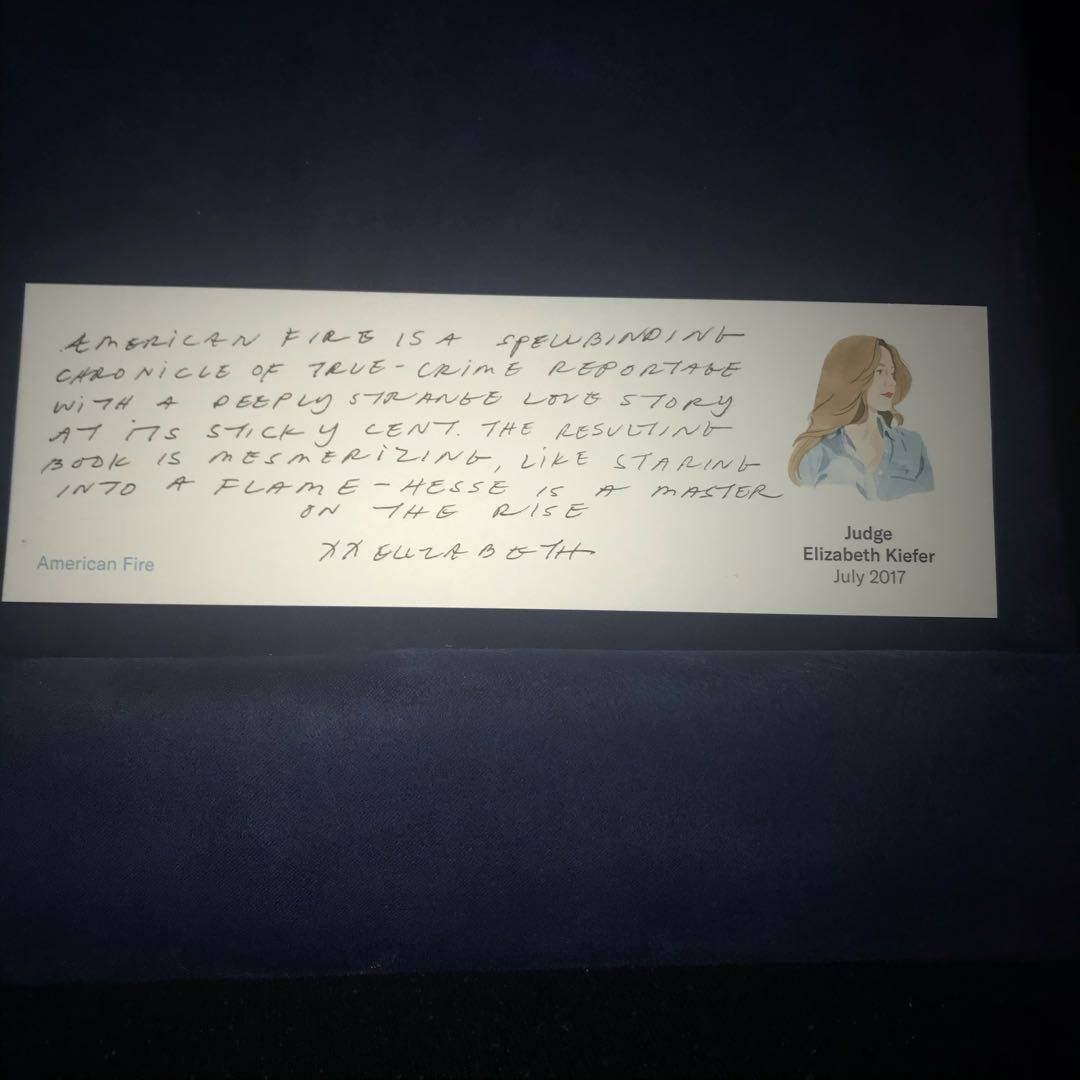 AMERICAN FIRE IS A SPELLBINDING
CHRONICLE OF TRUE-CRIME REPORTAGE
WITH A DEEPLY STRANGE LOVE STORY
AT ITS STICKY CENT. THE RESULTING
BOOK IS MESMERIZING, LIKE STARING
INTO A FLAME - HESSE IS A MASTER
ON THE RISE
XX ELIZABETH
American Fire
Judge
Elizabeth Kiefer
July 2017